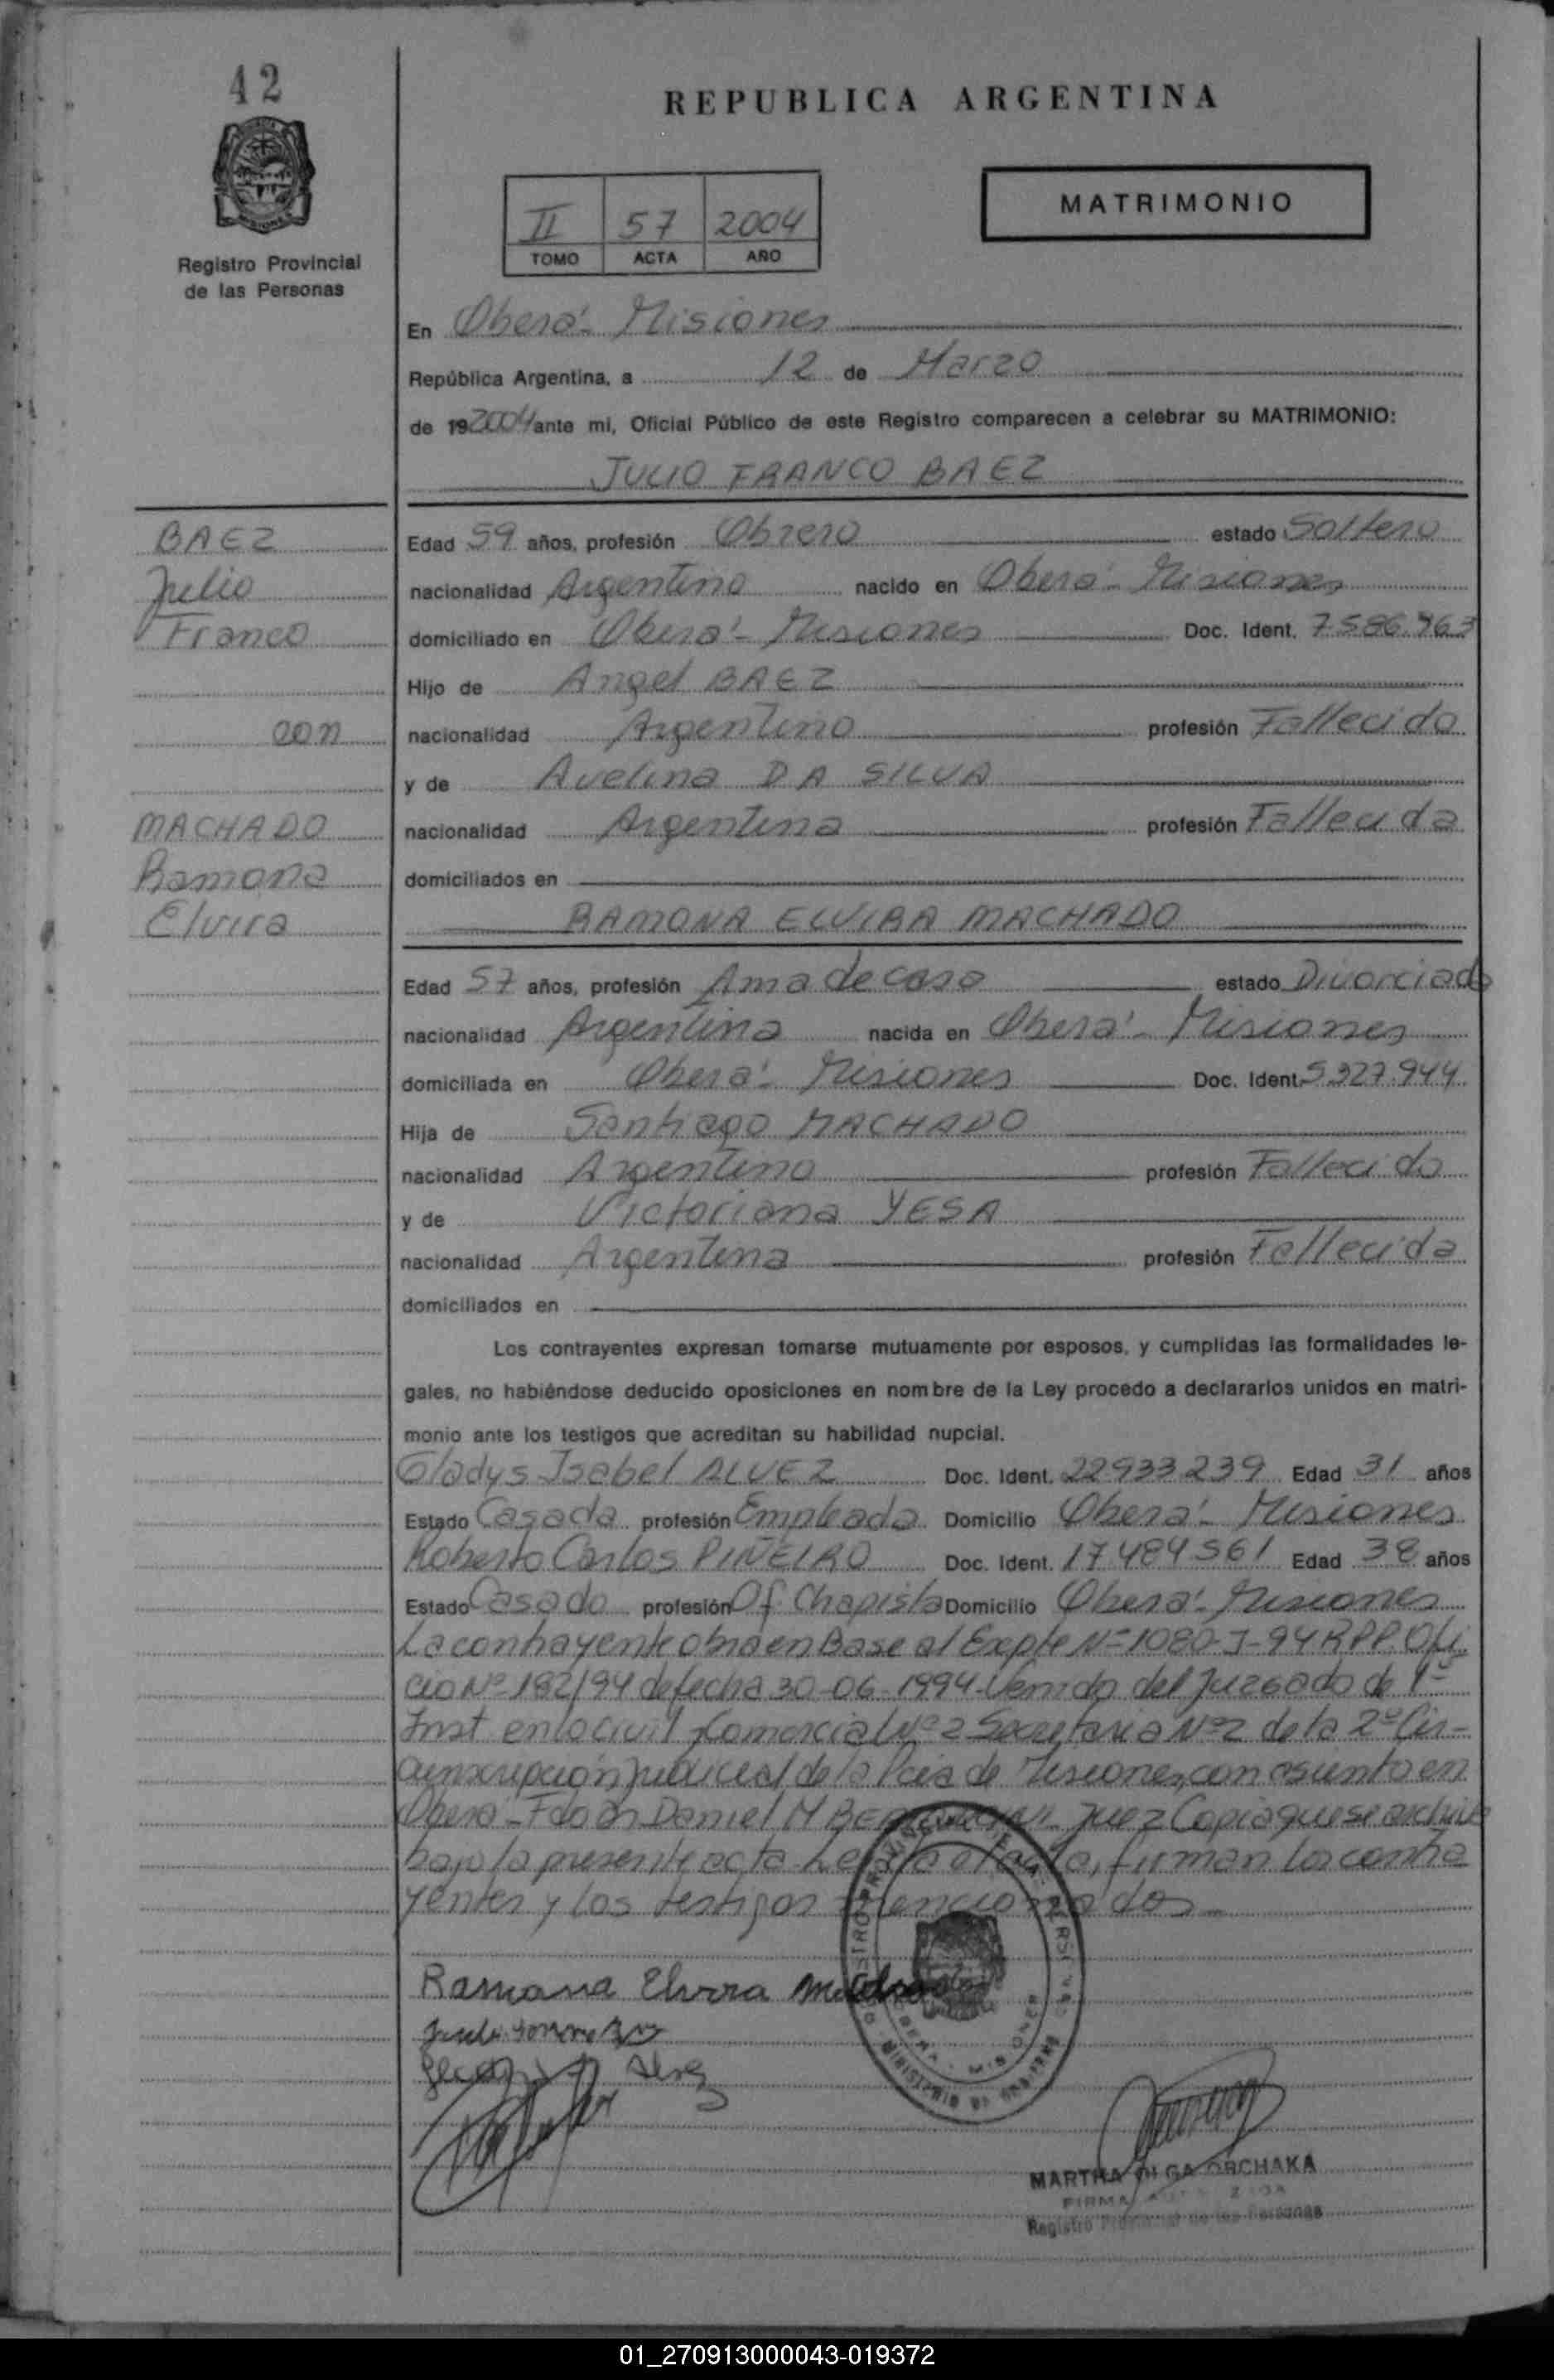 42
REPUBLICA ARGENTINA
MATRIMONIO
II 57 2004
TOMO ACTA AÑO
Registro Provincial
de las Personas
En Oberá - Misiones
República Argentina, a 12 de Marzo
de 19 2004 ante mi, Oficial Público de este Registro comparecen a celebrar su MATRIMONIO:
JULIO FRANCO BAEZ
BAEZ
Julio
Franco
con
MACHADO
Ramona
Elvira
Edad 59 años, profesión Obrero estado Soltero
nacionalidad Argentino nacido en Oberá - Misiones
domiciliado en Oberá - Misiones Doc. Ident. 7.586.963
Hijo de Angel BAEZ
nacionalidad Argentino profesión Fallecido
y de Avelina DA SILVA
nacionalidad Argentina profesión Fallecida
domiciliados en
RAMONA ELVIRA MACHADO
Edad 57 años, profesión Ama de casa estado Divorciada
nacionalidad Argentina nacida en Oberá - Misiones
domiciliada en Oberá - Misiones Doc. Ident. 5.327.944
Hija de Santiago MACHADO
nacionalidad Argentino profesión Fallecido
y de Victoriana YESA
nacionalidad Argentina profesión Fallecida
domiciliados en
Los contrayentes expresan tomarse mutuamente por esposos, y cumplidas las formalidades le-
gales, no habiéndose deducido oposiciones en nombre de la Ley procedo a declararlos unidos en matri-
monio ante los testigos que acreditan su habilidad nupcial.
Gladys Isabel ALVEZ Doc. Ident. 22.933.239 Edad 31 años
Estado Casada profesión Empleada Domicilio Oberá - Misiones
Roberto Carlos PIÑEIRO Doc. Ident. 17.484.561 Edad 38 años
Estado Casado profesión Of. Chapista Domicilio Oberá - Misiones
La contrayente obra en Base al Expte Nº 1080-J-94 R.P.P. Ofi
cio Nº 182/94 de fecha 30-06-1994. Venido del Juzgado de 1ª
Inst en lo Civil y Comercial Nº 2 Secretaria Nº 2 de la 2º Cir-
cunscripción judicial de la Pcia de Misiones, con asiento en
Oberá - Fdo Dr. Daniel M Juez Copia que se archiva
bajo la presente acta. Leída el acta, firman los contra
yentes y los testigos mencionados
Ramona Elvira Machado
Alvez
MARTHA OLGA ORCHAKA
Registro Provincial de las Personas
01_270913000043-019372